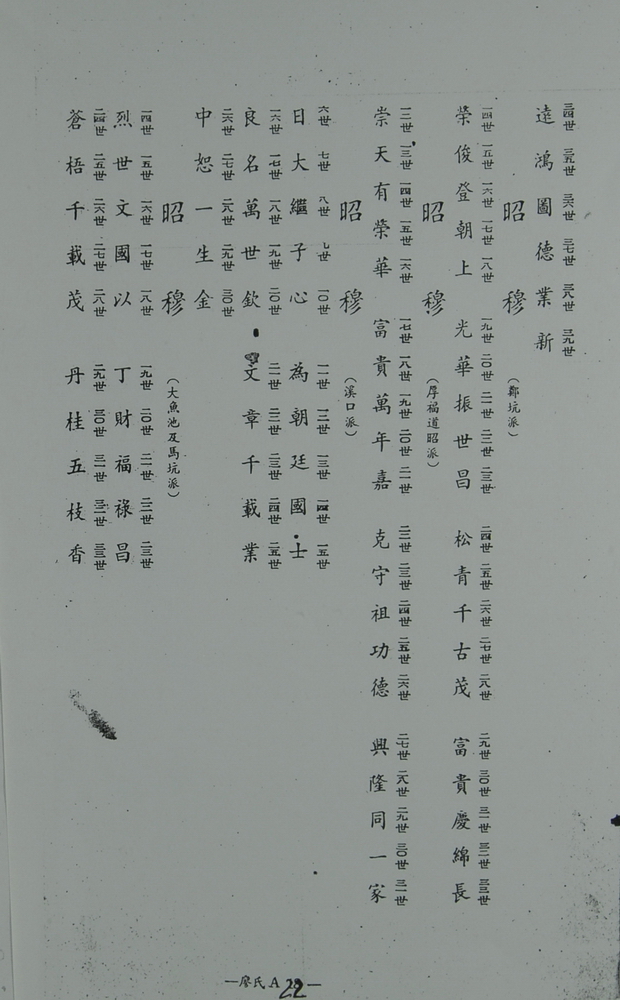 三四世 三五世 三六世 三七世 三八世 三九世
達鴻圖德業新
昭穆(鄭坑派)
一四世 一五世 一六世 一七世 一八世 一九世 二〇世 二一世 二二世 二三世 二四世 二五世 二六世 二七世 二八世 二九世 三〇世 三一世 三二世 三三世
榮俊登朝上 光華振世昌 松青千古茂 富貴慶綿長
昭穆(厚福道昭派)
一二世 一三世 一四世 一五世 一六世 一七世 一八世 一九世 二〇世 二一世 二二世 二三世 二四世 二五世 二六世 二七世 二八世 二九世 三〇世 三一世
崇天有榮華 富貴萬年嘉 克守祖功德 興隆同一家
昭穆(溪口派)
六世 七世 八世 九世 一〇世 一一世 一二世 一三世 一四世 一五世
日大繼子心 為朝廷國士
一六世 一七世 一八世 一九世 二〇世 二一世 二二世 二三世 二四世 二五世
良名萬世欽 文章千載業
二六世 二七世 二八世 二九世 三〇世
中恕一生金
昭穆(大魚池及馬坑派)
一四世 一五世 一六世 一七世 一八世 一九世 二〇世 二一世 二二世 二三世
烈世文國以 丁財福祿昌
二四世 二五世 二六世 二七世 二八世 二九世 三〇世 三一世 三二世 三三世
蒼梧千載茂 丹桂五枝香
—廖氏A22—